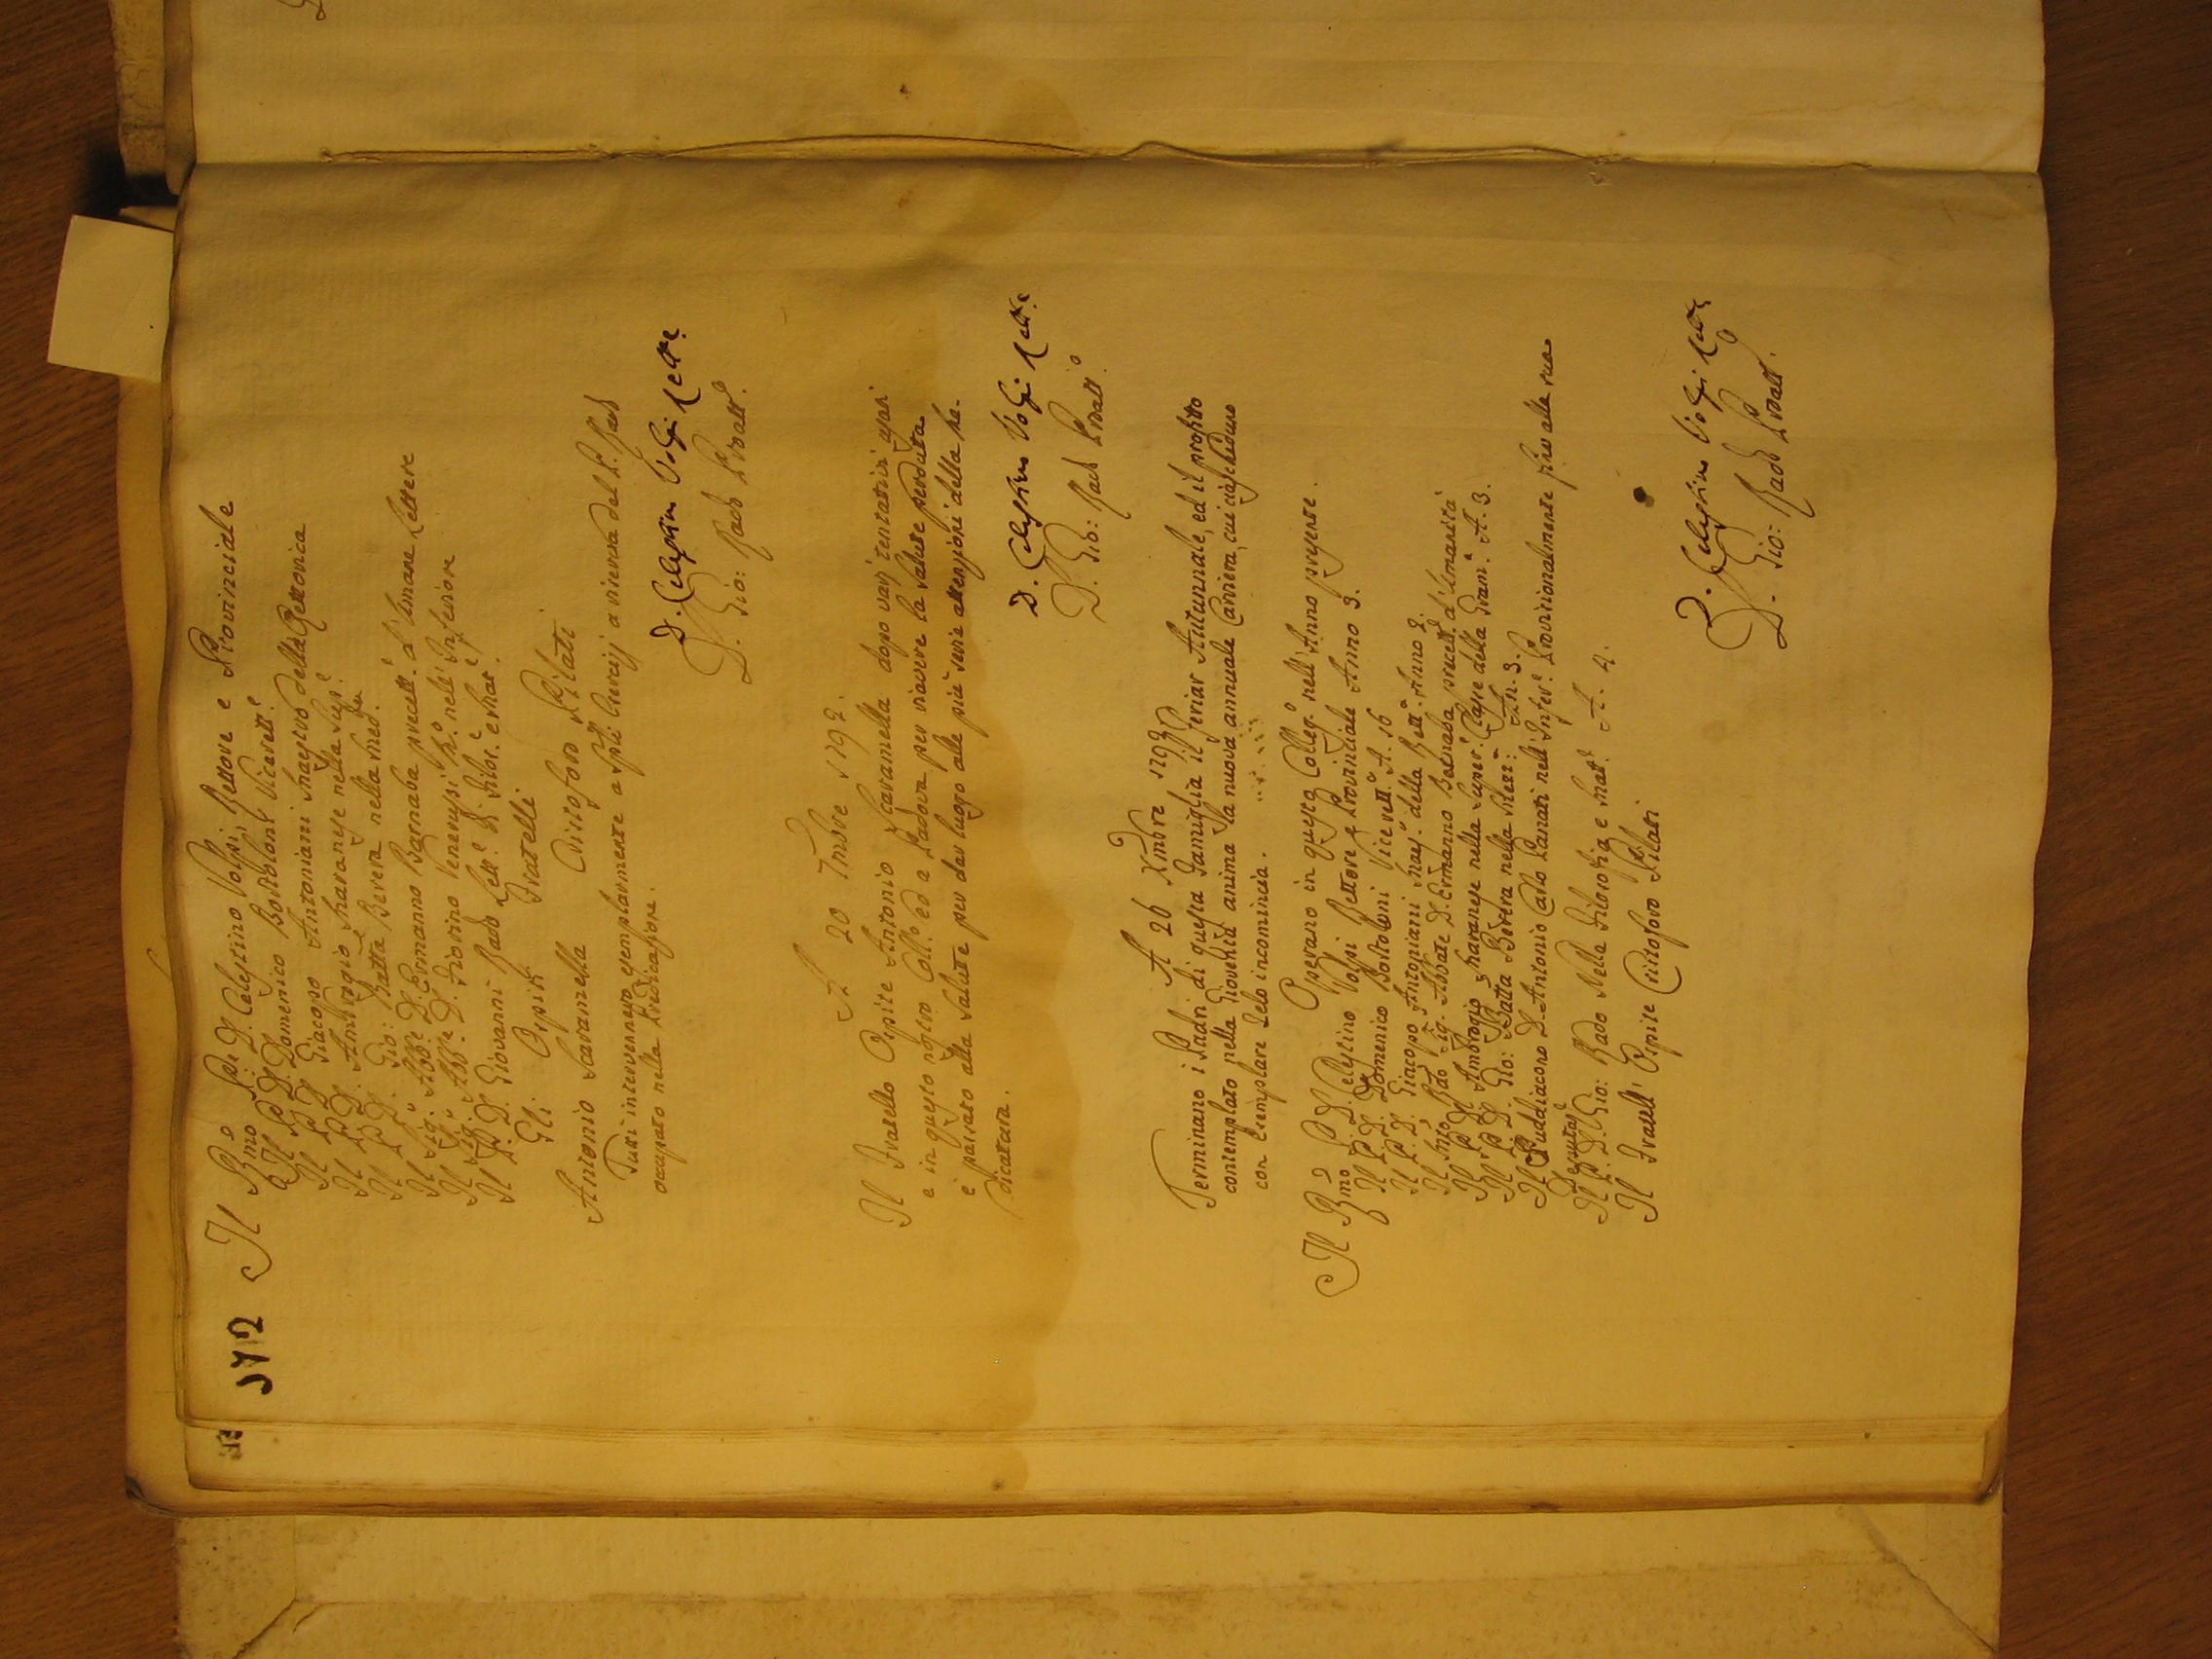 172
Il Rmo P. D. Celestino Volpi Rettore e Provinciale
Il P. D. Domenico Bortoloni Vicerett.e
Il P. D. Giacopo Antoniani Maestro della Rettorica
Il P. D. Ambrogio Maranese nella Sup.e
Il P. D. Gio: Batta Bevera nella Med.
Il Sig. Abb.e D. Ermanno Barnaba precett.e d'Umane Lettere
Il Sig. Abb.e D. Fiorino Venerussi nell'Inferiore
Il P. D. Giovanni Rado Lett.e di Filos.e e Mat.e
Gli Ospiti Fratelli
Antonio Scaramella Cristoforo Pilati
Tutti intervennero esemplarmente a Spli Esercizj a riserva del P. Rado
occupato nella Predicazione.
D. Celestino Volpi Rett.e
D. Gio: Rado Proatt.o
A 20 7mbre 1792.
Il Fratello Ospite Antonio Scaramella dopo varj tentativi usati
e in questo nostro Coll.o ed a Padova per riavere la salute perduta
è passato alla Salute per dar luogo alle più serie attenzioni della me-
dicatura.
D. Celestino Volpi Rett.e
D. Gio: Rado Proatt.o
A 26 Xmbre 1792
Terminano i Padri di questa Famiglia il Feriar Autunnale, ed il profitto
contemplato nella Gioventù anima la nuova annuale Carriera, cui ciascheduno
con esemplare Zelo incomincia.
Operano in questo Colleg.o nell'Anno presente.
Il Rmo P. D. Celestino Volpi Rettore e Provinciale Anno 3.
Il P. D. Domenico Bortoloni Vicerett.e A. 16
Il P. D. Giacopo Antoniani Maes.o della Rett.a Anno 2.
Il Sig. Abbate D. Ermanno Barnaba precett.e d'Umanità
Il P. D. Ambrogio Maranese nella Super.e Classe della Gram.a A. 3.
Il P. D. Gio: Batta Bevera nella Mezz: An. 3.
Il Suddiacono D. Antonio Carlo Panati nell'Infer.e Provisionalmente fino alla sua
Il P. D. Gio: Rado Nella Filosofia e Mat.e A. 4.
Il Fratell' Ospite Cristoforo Pilati
D. Celestino Volpi Rett.e
D. Gio: Rado Proatt.